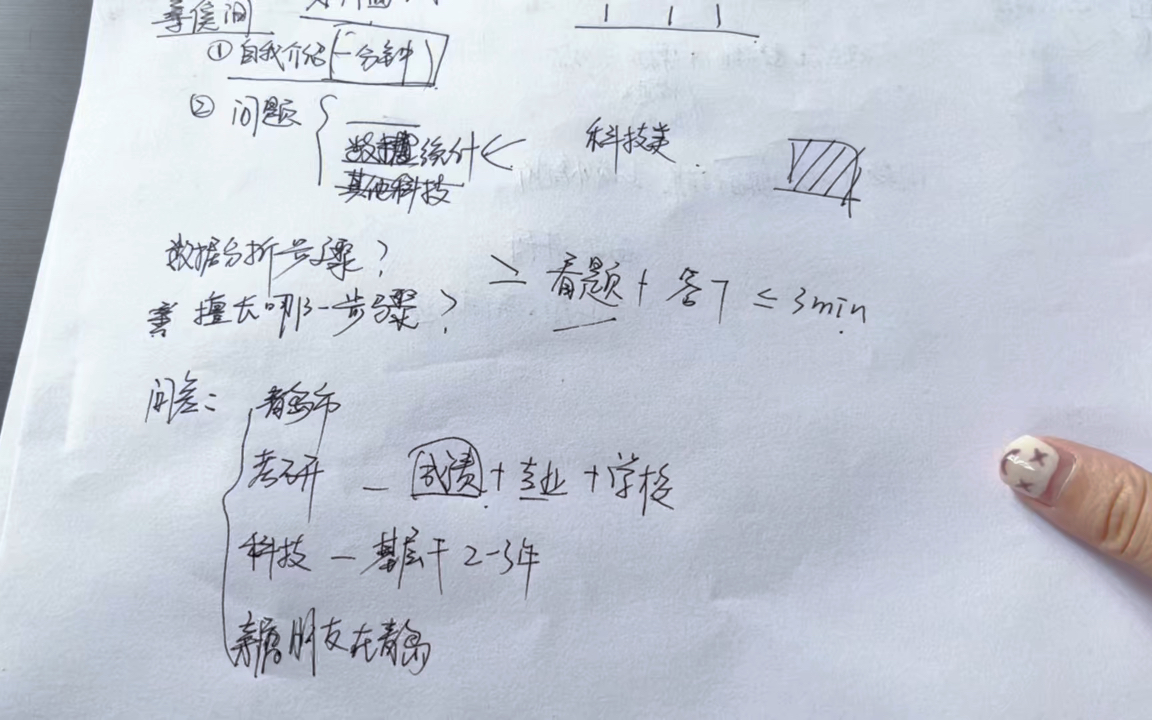 等候间
① 自我介绍(一分钟)
② 问题 { 统计 < 科技类
其他科技
数据分析步骤?
擅长哪一步骤? 看题 + 答 ≤ 3min
问答: 青岛市
考研 — 成绩 + 专业 + 学校
科技 — 基层干 2-3年
亲属朋友在青岛